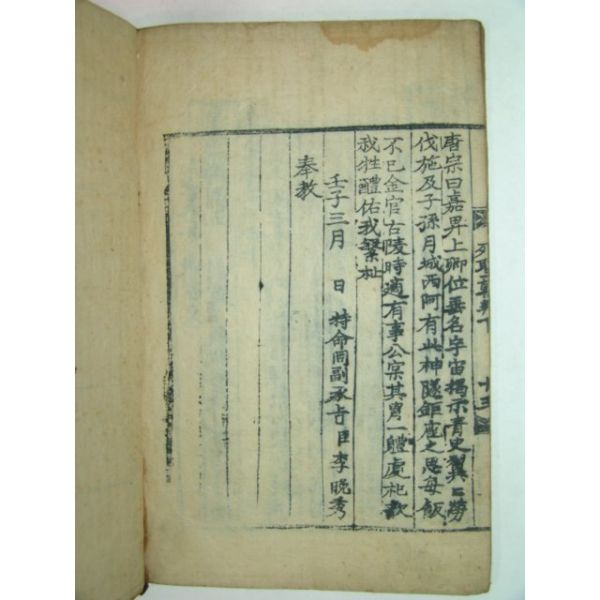 唐宗曰嘉畀上卿位垂名宇宙揭示靑史翼〻勞
伐施及子孫月城西阿有此神隧鉅產之思每飯
不已金官古陵時適有事公寔其胄一軆虔祀歆
我牲醴佑我繄祉
壬子三月 日 特命同副承旨臣李晚秀
奉教
十三